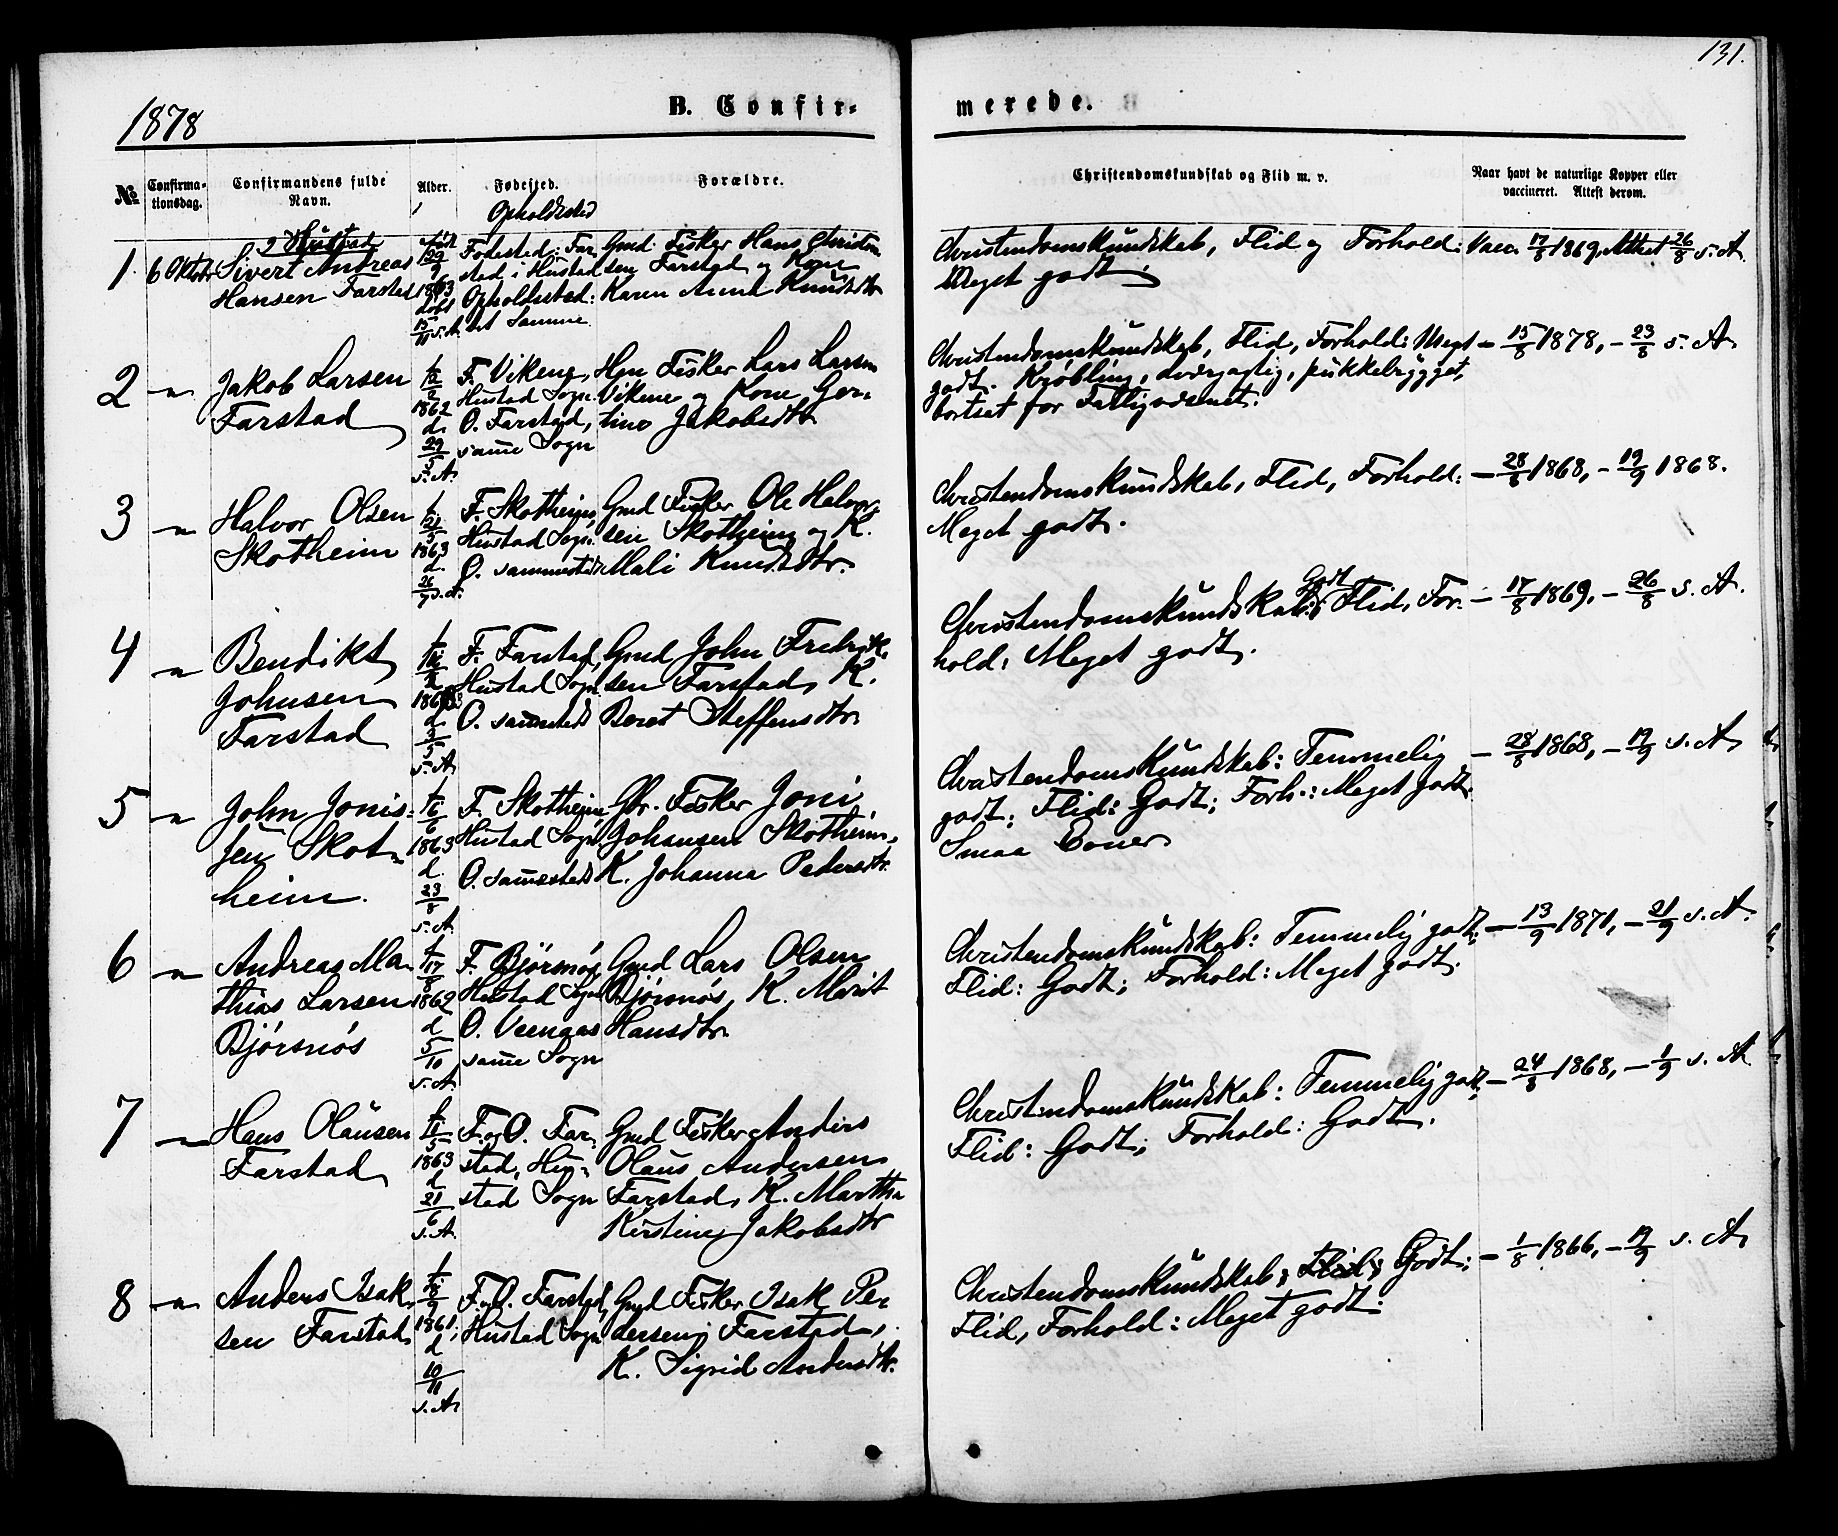 131.
1878
B. Confir-
merede.
№
Confirma-
tionsdag.
Confirmandens fulde
Navn.
Alder.
Fødested.
Opholdssted
Forældre.
Christendomskundskab og Flid m. v.
Naar havt de naturlige Kopper eller
vaccineret. Attest derom.
I Hustad
1. 6 Oktbr
Sivert Andreas
Hansen Farstad
født
29/9
1863
døbt
15/11 s. A.
Fødested: Far-
stad i Hustad
Opholdssted:
det Samme.
Gmd. Fisker Hans Christen-
sen Farstad og Kone
Karen Anna Knudsdtr
Christendomskundskab, Flid og Forhold:
Meget godt.
Vacc. 17/8 1869, Attest 26/8 s. A.
2 — " —
Jakob Larsen
Farstad
f.
1862
d.
29/5
s. A.
F. Vikene,
Hustad Sogn
O. Farstad,
samme Sogn
Hmd Fisker Lars Larsen
Vikene og Kone Ger-
tine Jakobsdtr
Christendomskundskab, Flid, Forhold: Meget
godt. Krøbling, dværgagtig, pukkelrygget,
bortsat for Fattigvæsenet.
— 15/8 1878, — 23/8 s. A.
3 — " —
Halvor Olsen
Skotheim
f.
21/5
1863
d.
26/7 s. A.
F. Skotheim,
Hustad Sogn.
O. sammesteds
Gmd Fisker Ole Halvor-
sen Skotheim og K.
Mali Knudsdtr.
Christendomskundskab, Flid, Forhold:
Meget godt.
— 28/8 1868, — 19/9 1868.
4 — " —
Bendikt
Johnsen
Farstad
f.
d.
3/5
s. A.
F. Farstad,
Hustad Sogn
O. sammesteds
Gmd John Fredrik-
sen Farstad, K.
Beret Steffensdtr
Christendomskundskab: Godt Flid, For-
hold: Meget godt.
— 17/8 1869, — 26/8 s. A.
5 — " —
John Jonis-
sen Skot-
heim.
f.
11/6
1863
d.
23/8
s. A.
F. Skotheim,
Hustad Sogn
O. sammesteds
Gbr. Fisker Joni
Johansen Skotheim,
K. Johanna Pedersdtr.
Christendomskundskab: Temmelig
godt; Flid: Godt; Forh.: Meget godt.
Smaa Evner
— 28/8 1868, — 19/9 s. A.
6 — " —
Andreas Ma-
thias Larsen
Bjørsnøs
f.
17/8
1862
d.
5/10
s. A.
F. Bjørsnøs,
Hustad Sogn
O. Veengas
samme Sogn
Gmd Lars Olsen
Bjørsnøs, K. Marit
Hansdtr.
Christendomskundskab: Temmelig godt;
Flid: Godt; Forhold: Meget godt.
— 13/9 1871, — 21/9 s. A.
7 — " —
Hans Olausen
Farstad
f.
11/5
1863
d.
21/6
s. A.
F. og O. Far-
stad, Hu-
stad Sogn
Gmd Fisker Anders
Olaus Andersen
Farstad, K. Martha
Kirstine Jakobsdtr
Christendomskundskab: Temmelig godt;
Flid: Godt; Forhold: Godt.
— 24/8 1868, — 1/9 s. A.
8 — " —
Anders Isak-
sen Farstad
f.
1861,
d.
10/11
s. A.
F. O. Farstad,
Hustad Sogn
Gmd Fisker Isak Pe-
dersen Farstad,
K. Sigrid Andersdtr.
Christendomskundskab; Flid: Godt;
Flid, Forhold: Meget godt.
— 1/8 1866, — 19/9 s. A.